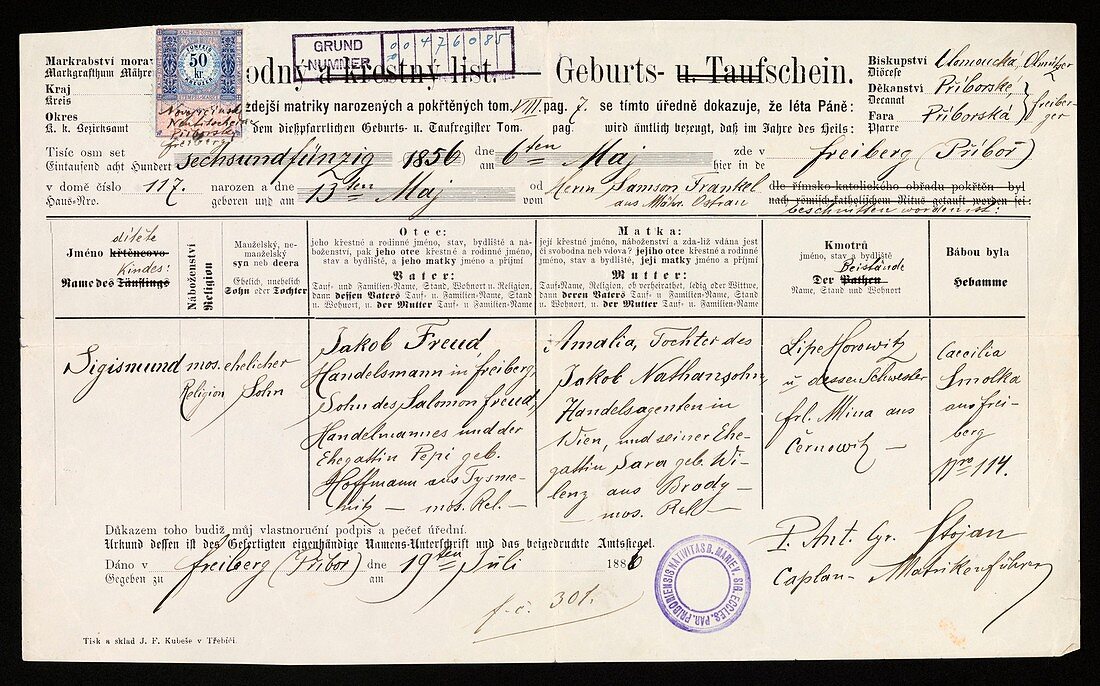 GRUND
NUMMER
00476085
0
50
kr
Markrabství mora
Markgrafthum Mähre
Kraj
Kreis
Okres
K. k. Bezirksamt
Neutitschein
Příborský
Freiberg
odný a křestný list. — Geburts- u. Taufschein.
Biskupství
Diöcese
Olomoucká, Olmützer
Děkanství
Decanat
Příborské
Fara
Pfarre
Příborská
Freiberger
zdejší matriky narozených a pokřtěných tom. VIII. pag. 7. se tímto úředně dokazuje, že léta Páně:
dem dießpfarrlichen Geburts- u. Taufregister Tom. pag. wird ämtlich bezeugt, daß im Jahre des Heils:
Tisíc osm set
Eintausend acht Hundert
Sechsundfünzig 1856
dne
am
6ten Maj
zde v
hier in de
Freiberg (Příboř)
v domě číslo
Haus-Nro.
117.
narozen a dne
geboren und am
13ten Maj
od
vom
Herrn Samson Frankel
aus Mähr. Ostrau
dle římsko-katolického obřadu pokřtěn byl
nach römisch-katholischem Ritus getauft worden sei:
beschnitten worden ist:
dítěte
Jméno křtěncovo
Kindes:
Name des Täuflings
Náboženství
Religion
Manželský, ne-
manželský
syn neb deera
Ehelich, unehelich
Sohn oder Tochter
Otec:
jeho křestné a rodinné jméno, stav, bydliště a ná-
boženství, pak jeho otce křestné a rodinné jméno,
stav a bydliště, a jeho matky jméno a příjmí
Vater:
Tauf- und Familien-Name, Stand, Wohnort u. Religion,
dann dessen Vaters Tauf- u. Familien-Name, Stand
u. Wohnort, u. der Mutter Tauf- u. Familien-Name
Matka:
její křestné jméno, náboženství a zda-liž vdána jest
svobodna neb vdova? jejího otce křestné a rod. jméno,
stav a bydliště, její matky jméno a příjmí
Mutter:
Tauf-Name, Religion, ob verheirathet, ledig oder Wittwe,
dann deren Vaters Tauf- u. Familien-Name, Stand
u. Wohnort, u. der Mutter Tauf- u. Familien-Name
Kmotrů
jméno, stav a bydliště
Beistände
Der Pathen
Name, Stand und Wohnort
Bábou byla
Hebamme
Sigismund
mos.
Religion
ehelicher
Sohn
Jakob Freud,
Handelsmann in Freiberg,
Sohn des Salomon Freud,
Handelmannes und der
Ehegattin Pepi geb.
Hoffmann aus Tysme-
nitz — mos. Rel. —
Amalia, Tochter des
Jakob Nathansohn,
Handelsagenten in
Wien, und seiner Ehe-
gattin Sara geb. Wi-
lenz aus Brody —
mos. Rel —
Lipe Horowitz
u dessen Schwester
frl. Mina aus
Černowitz —
Caecilia
Smolka
aus Frei-
berg
Nro 114.
Důkazem toho budiž můj vlastnoruční podpis a pečeť úřední.
Urkund dessen ist des Gefertigten eigenhändige Namens-Unterschrift und das beigedruckte Amtssiegel.
Dáno v
Gegeben zu
Freiberg (Příboř)
dne
am
19ten Juli
1886
P. Ant. Cyr. Stojan
Caplan — Matrikenführer
Tisk a sklad J. F. Kubeše v Třebíči.